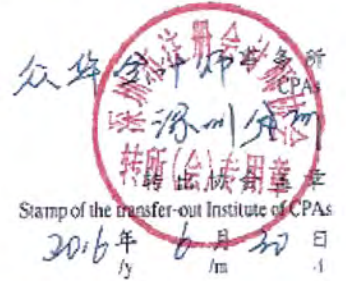 众华会计师事务所
CPAs
深圳分所
深圳市注册会计师协会
转所(会)专用章
转出协会盖章
Stamp of the transfer-out Institute of CPAs
2016年 6月 30日
/y /m